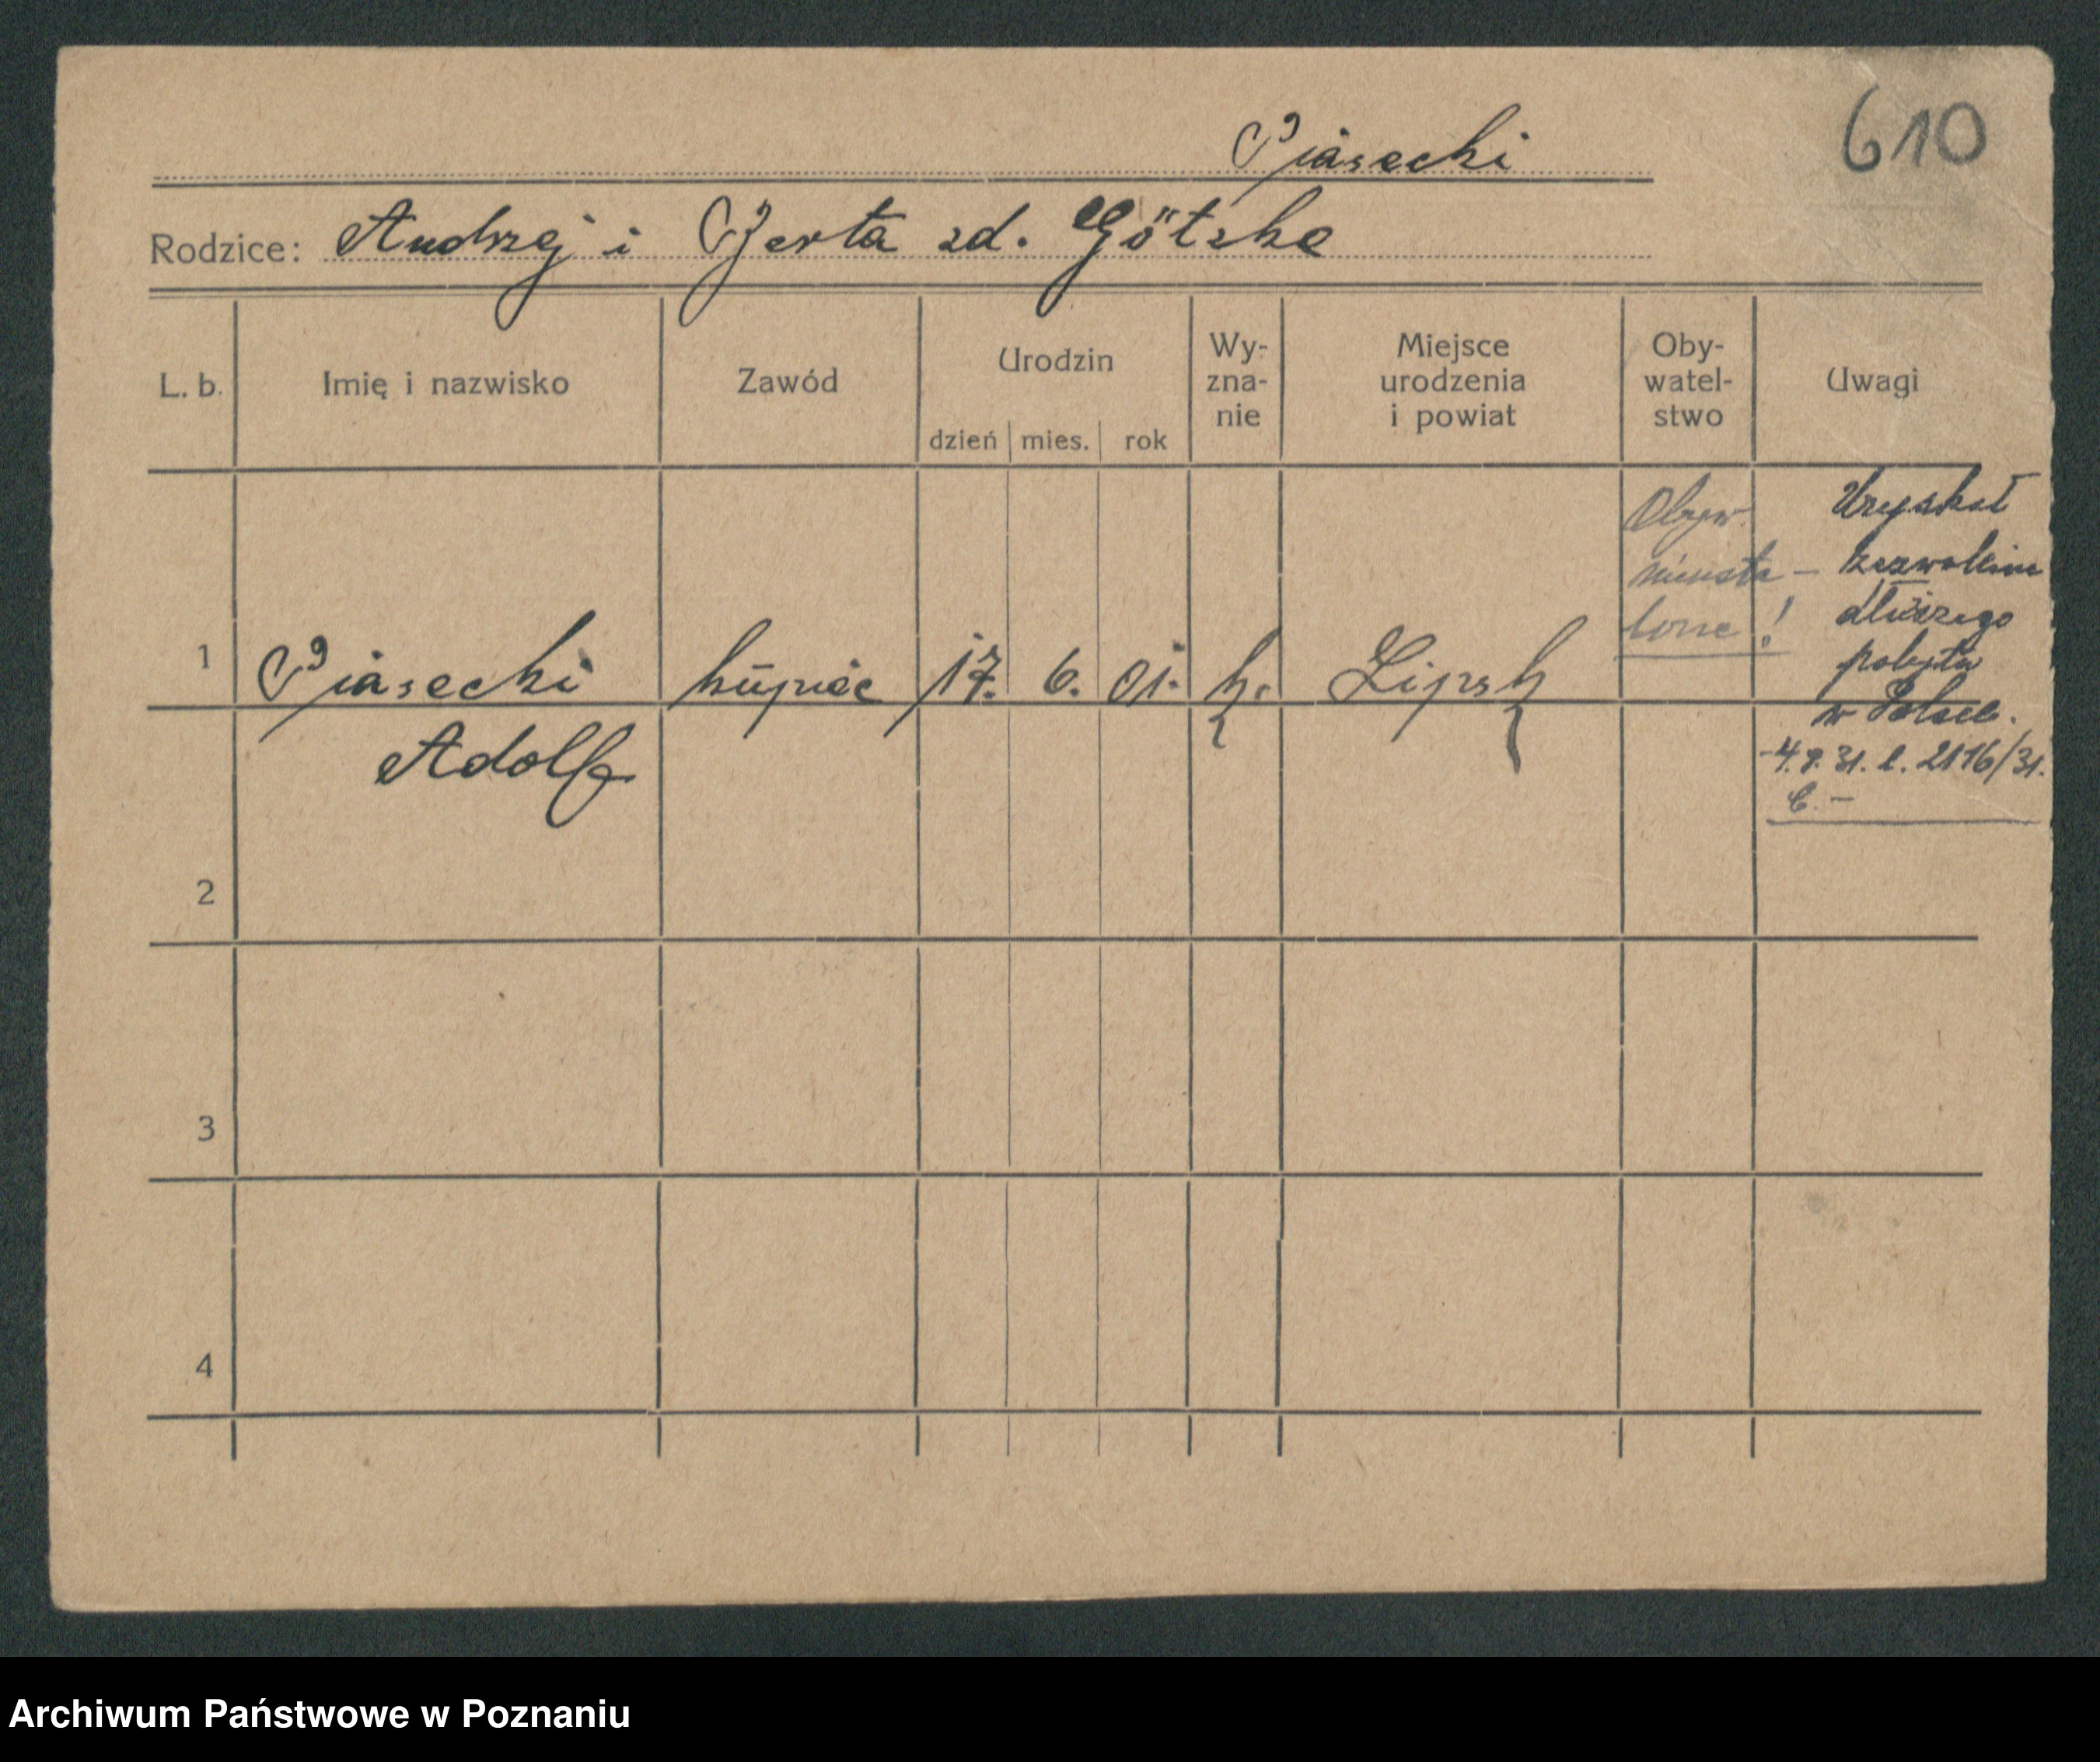 610
Piasecki
Rodzice: Andrzej i Berta zd. Götzke
L. b. Imię i nazwisko Zawód Urodzin dzień mies. rok Wy-zna-nie Miejsce urodzenia i powiat Oby-watel-stwo Uwagi
1 Piasecki kupiec 17. 6. 01. k. Lipsk
Adolf
Obyw.
nieusta-
lone!
Uzyskał
zezwolenie
dłuższego
pobytu
w Polsce.
4.8.31. l. 2116/31.
C. -
2
3
4
Archiwum Państwowe w Poznaniu